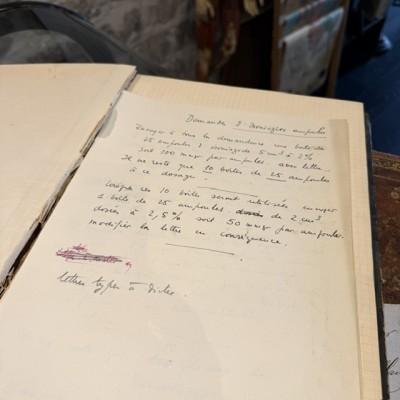 Demande d' ampoules
Envoyer à tous les demandeurs une boîte de
25 ampoules 5 cm³ à 2%
soit 100 mmgr par ampoules avec lettre.
Il ne reste que 10 boîtes de 25 ampoules
à ce dosage.
Lorsque ces 10 boîtes seront utilisées envoyer
1 boîte de 25 ampoules de 2 cm³
dosées à 2,5% soit 50 mmgr par ampoule.
modifier la lettre en conséquence.
lettres types à dicter.